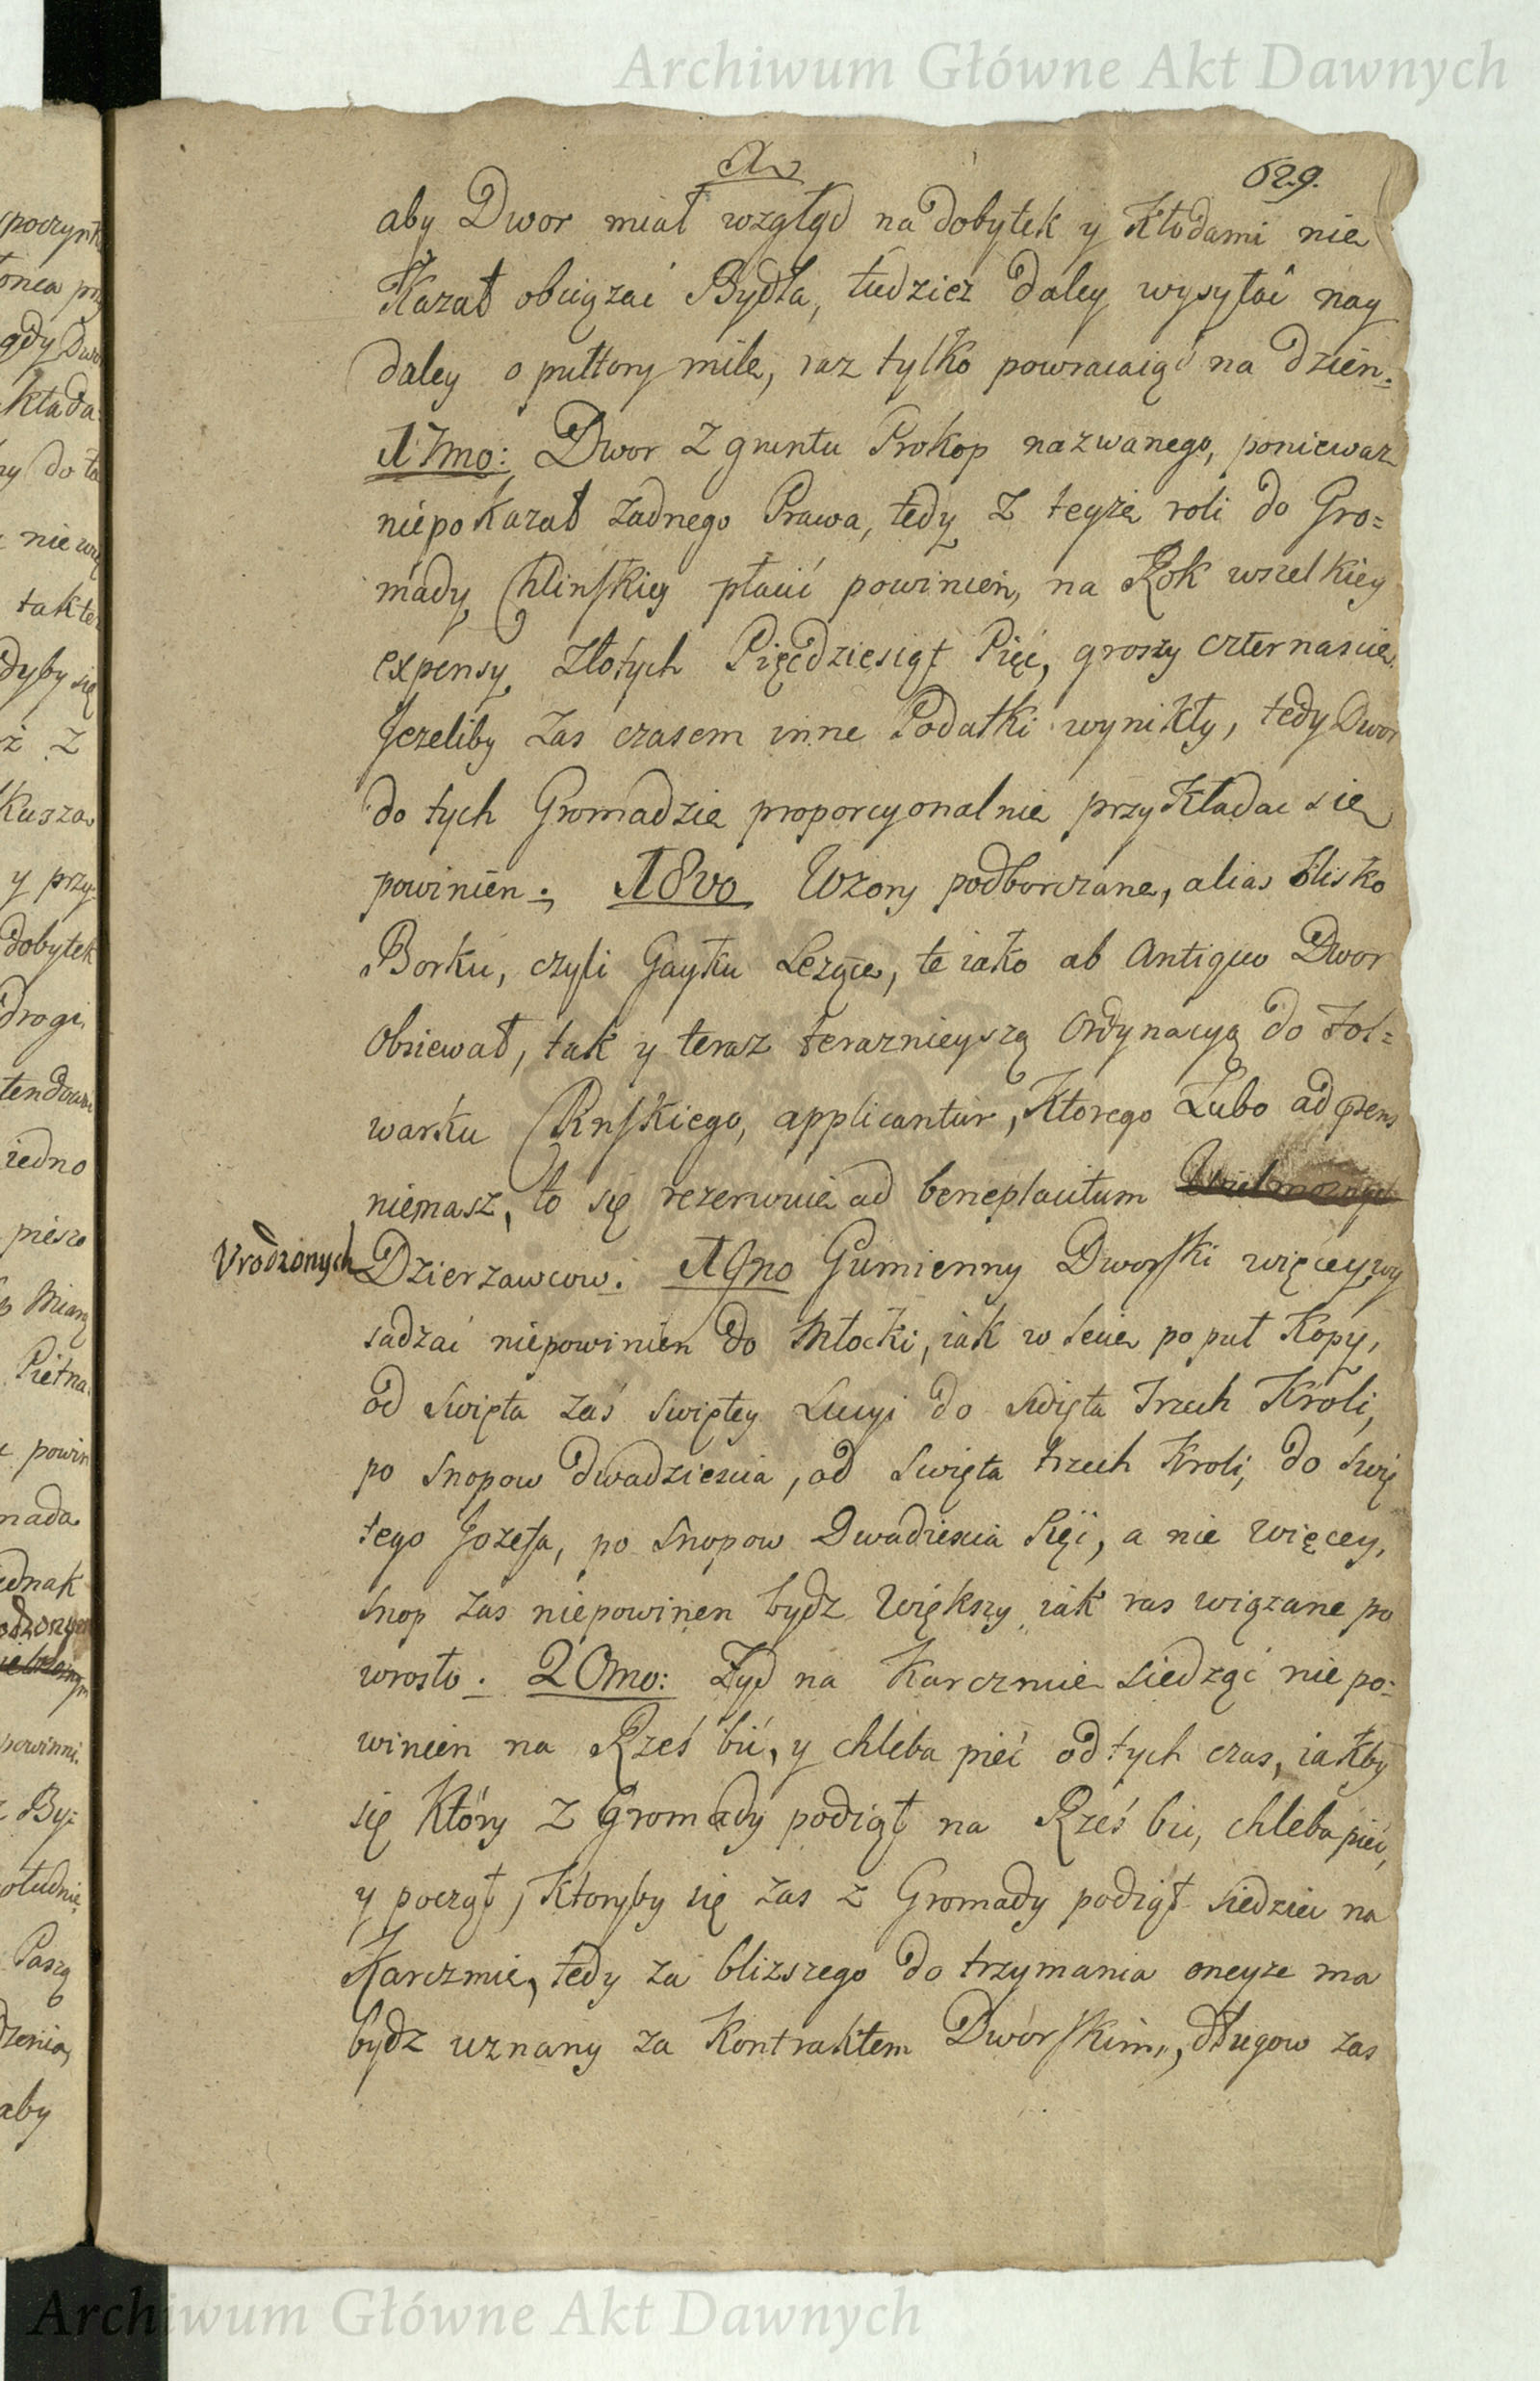 Archiwum Główne Akt Dawnych
629.
aby Dwor miał wzgląd na dobytek y Kłodami nie
Kazał obciązać Bydła, tudziesz daley wysyłać nay
daley o pułtory mile, raz tylko powracaiąc na dzień.
17mo: Dwor z gruntu Prokop nazwanego, poniewaz
niepokazał zadnego Prawa, tedy z teyze roli do Gro=
mady Chlinskiey płacić powinien, na Rok wszelkiey
expensy złotych Pięćdziesiąt Pięć, groszy czternascie
Jezeliby zas czasem inne Podatki wynikły, tedy Dwor
do tych Gromadzie proporcyonalnie przykładac się
powinien. 18vo Wzory podborczane, alias blisko
Borku, czyli Gayku Lezące, te iako ab Antiquo Dwor
Obsiewał, tak y teraz terazńieyszą Ordynacyą do Fol=
warku applicantur, Ktorego Lubo ad praesens
niemasz, to się rezerwuie ad beneplacitum
Urodzonych Dzierzawcow. 19no Gumienny Dworski więcey wy
sadzać niepowinien do Młocki, iak w lecie po puł Kopy,
od swięta zaś swiętey Lucyi do swięta Trzech Króli,
po snopow dwadziescia, od swięta trzech Kroli, do swię
tego Jozefa, po snopow Dwadziescia Pięć, a nie więcey,
snop zas niepowinen bydz większy iak ras wiązane po
wrosło. 20mo: Zyd na Karczmie siedząc nie po=
winien na Rześ bić, y chleba piec od tych czas, iakby
się Który z Gromady podiął na Rześ bić, chleba piec,
y począł, Ktoryby się zas z Gromady podiął siedziec na
Karczmie, tedy za blizszego do trzymania oneyze ma
bydz uznany za Kontraktem Dwórskim, długow zas
Archiwum Główne Akt Dawnych